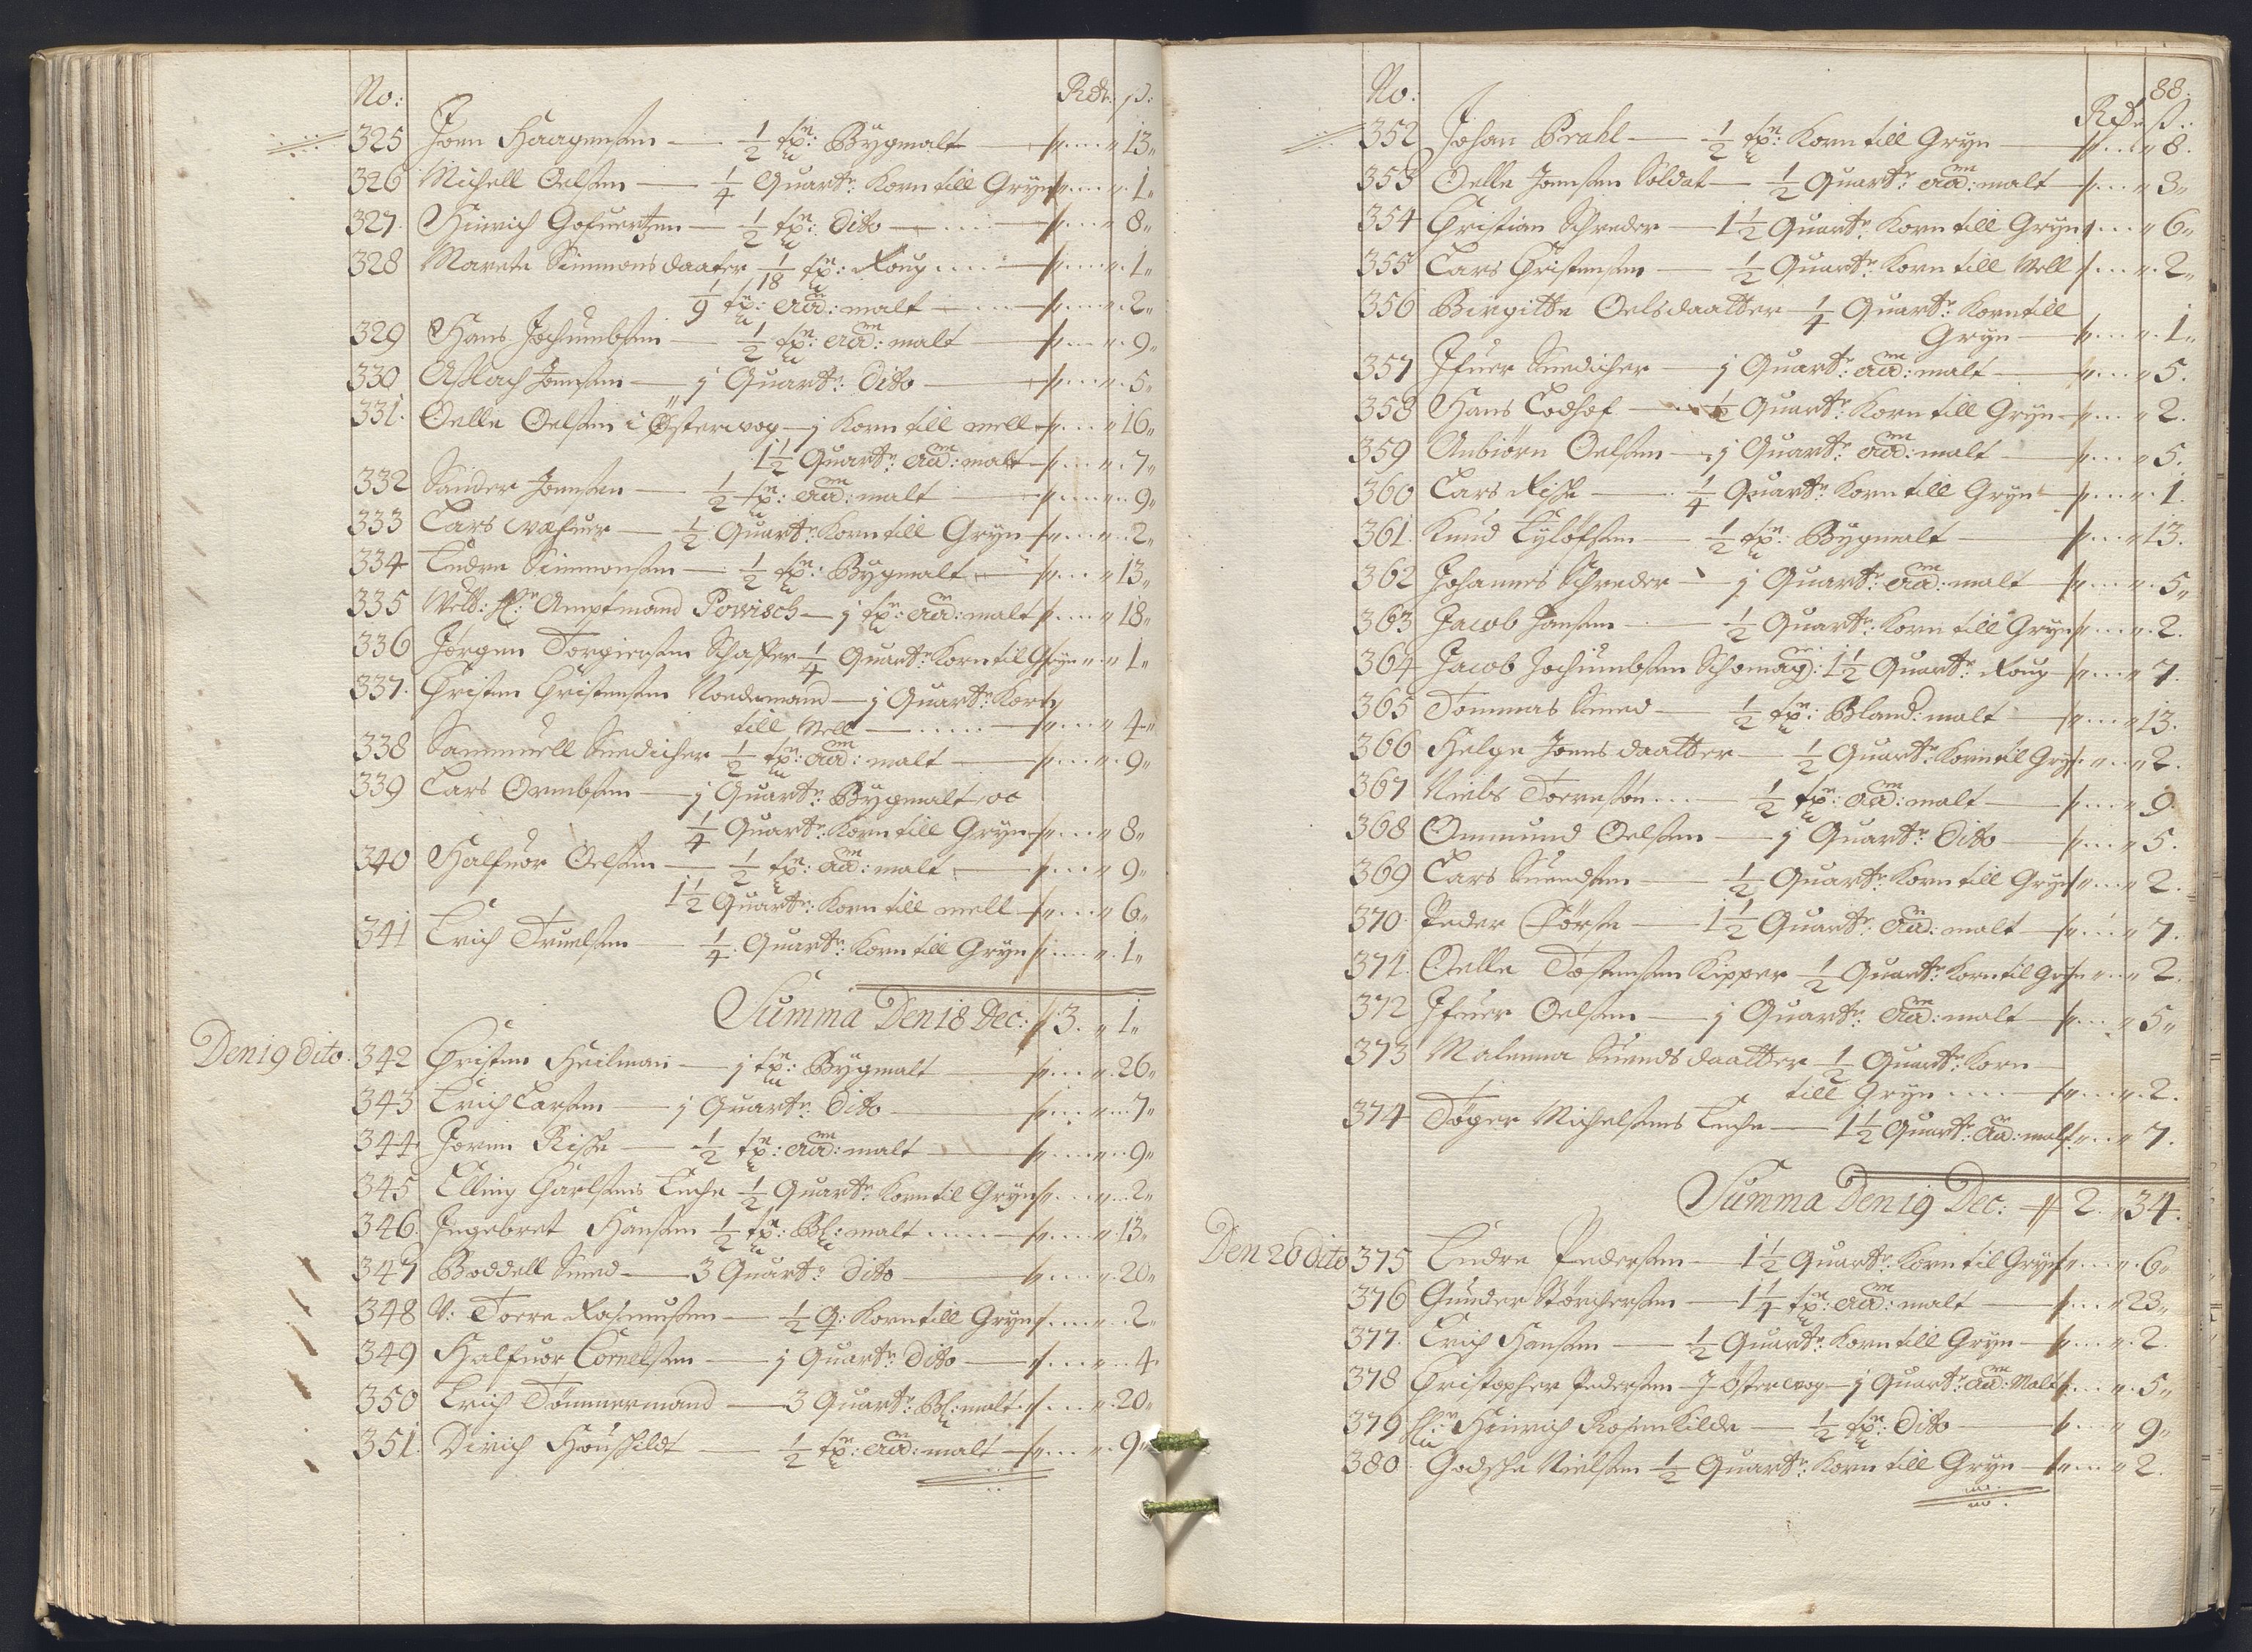 No: Rdr. ß:
325 Joen Haagensen — 1/2 tn: Bygmalt — 13
326 Michell Oelsen — 1/4 Quartr: Korn till Gryn 1
327. Hinrich Gofuertzen — 1/2 tn: dito — 8
328 Marete Simmonsdaater 1/18 tn: Roug 1
1/9 tn: aad: malt — 2
329 Hans Jochumbsen — 1/2 tn: aad: malt — 9
330 Asslach Joensen — j Quartr: dito — 5
331. Oelle Oelsen i Østervog — j Korn till mell 16
1 1/2 Quartr: aad: malt 7
332 Sander Joensen — 1/2 tn: aad: malt — 9
333 Lars væfuer — 1/2 Quartr: Korn till Gryn 2
334 Endre Simmonsen — 1/2 tn: Bygmalt 13
335 Velb: Hr: Amptmand Powisch — j tn: aad: malt 18
336 Jørgen Torgiersen Schaffer 1/4 Quartr: Korn til Gryn 1
337. Christen Christensen Nordmand — j Quartr: Korn
till Mell — 4
338 Sammuell Snedicher 1/2 tn: aad: malt — 9
339 Lars Ormbsen — j Quartr: Bygmalt oc
1/4 Quartr: Korn till Gryn 8
340 Halfuor Oelsen — 1/2 tn: aad: malt — 9
1 1/2 Quartr: Korn till mell 6
341 Erich Truelsen — 1/4 Quartr: Korn till Gryn 1
Summa Den 18 Dec: 3. 1
Den 19 dito. 342 Christen Heilman — j tn: Bygmalt — 26
343 Erich Larsen — j Quartr: dito — 7
344 Joren Riske — 1/2 tn: aad: malt — 9
345 Elling Carlsens Enche 1/2 Quartr: Korn til Gryn 2
346. Ingebret Hansen 1/2 tn: Bl: malt 13
347 Boddell Smed — 3 Quartr: dito — 20
348 V: Toere Rasmusen — 1/2 Q: Korn till Gryn 2
349 Halfuor Cornelsen — j Quartr: dito — 4
350 Erich Tömmermand — 3 Quartr: Bl: malt 20
351. Dirich Houschildt — 1/2 tn: aad: malt — 9
88.
No: Rdr ß:
352 Johan Prahl — 1/2 tn: Korn till Gryn — 8.
353 Oelle Joensen Soldat — 1/2 Quartr: aad: malt — 3
354 Christian Schreder — 1 1/2 Quartr: Korn till Gryn 6
355 Lars Christensen — 1/2 Quartr: Korn till Mell 2
356 Birgitte Oelsdaatter 1/4 Quartr: Korn till
Gryn — 1
357 Ifuer Snedicher — j Quartr: aad: malt — 5.
358 Hans Codhof — 1/2 Quartr: Korn till Gryn 2.
359 Anbiørn Oelsen — j Quartr: aad: malt — 5.
360 Lars Riske — 1/4 Quartr: Korn till Gryn 1
361. Knud Eylofsen — 1/2 tn: Bygmalt — 13.
362 Johannes Schreder — j Quartr: aad: malt 5
363 Jacob Hansen — 1/2 Quartr: Korn till Gryn 2.
364 Jacob Jochumbsen Schomag: 1 1/2 Quartr: Roug 7.
365 Tommas Smed — 1/2 tn: Bland: malt 13.
366 Helge Joensdaatter — 1/2 Quartr: Korn til Gryn 2.
367 Niels Toeresön — 1/2 tn: aad: malt — 9.
368 Ommund Oelsen — j Quartr: dito — 5.
369 Lars Suendsen — 1/2 Quartr: Korn till Gryn 2.
370. Peder Börse — 1 1/2 Quartr: aad: malt 7.
371. Oelle Töstensen Kipper 1/2 Quartr: Korn til Gryn 2
372 Ifuer Oelsen — j Quartr: aad: malt 5
373 Malenna Suendsdaatter 1/2 Quartr: Korn
till Gryn 2.
374 Töger Michelsens Enche — 1 1/2 Quartr: aad: malt 7.
Summa Den 19 Dec: 2. 34.
Den 20 dito 375 Endre Pedersen — 1 1/2 Quartr: Korn til Gryn 6
376 Gunder Störchersen — 1 1/4 tn: aad: malt — 23
377. Erich Hansen — 1/2 Quartr: Korn till Gryn 2.
378 Christopher Pedersen J Østervog j Quartr: aad: Malt 5
379 Hr: Hinrich Rosenkilde — 1/2 tn: dito — 9
380. Godsche Nielsen 1/2 Quartr: Korn till Gryn 2.